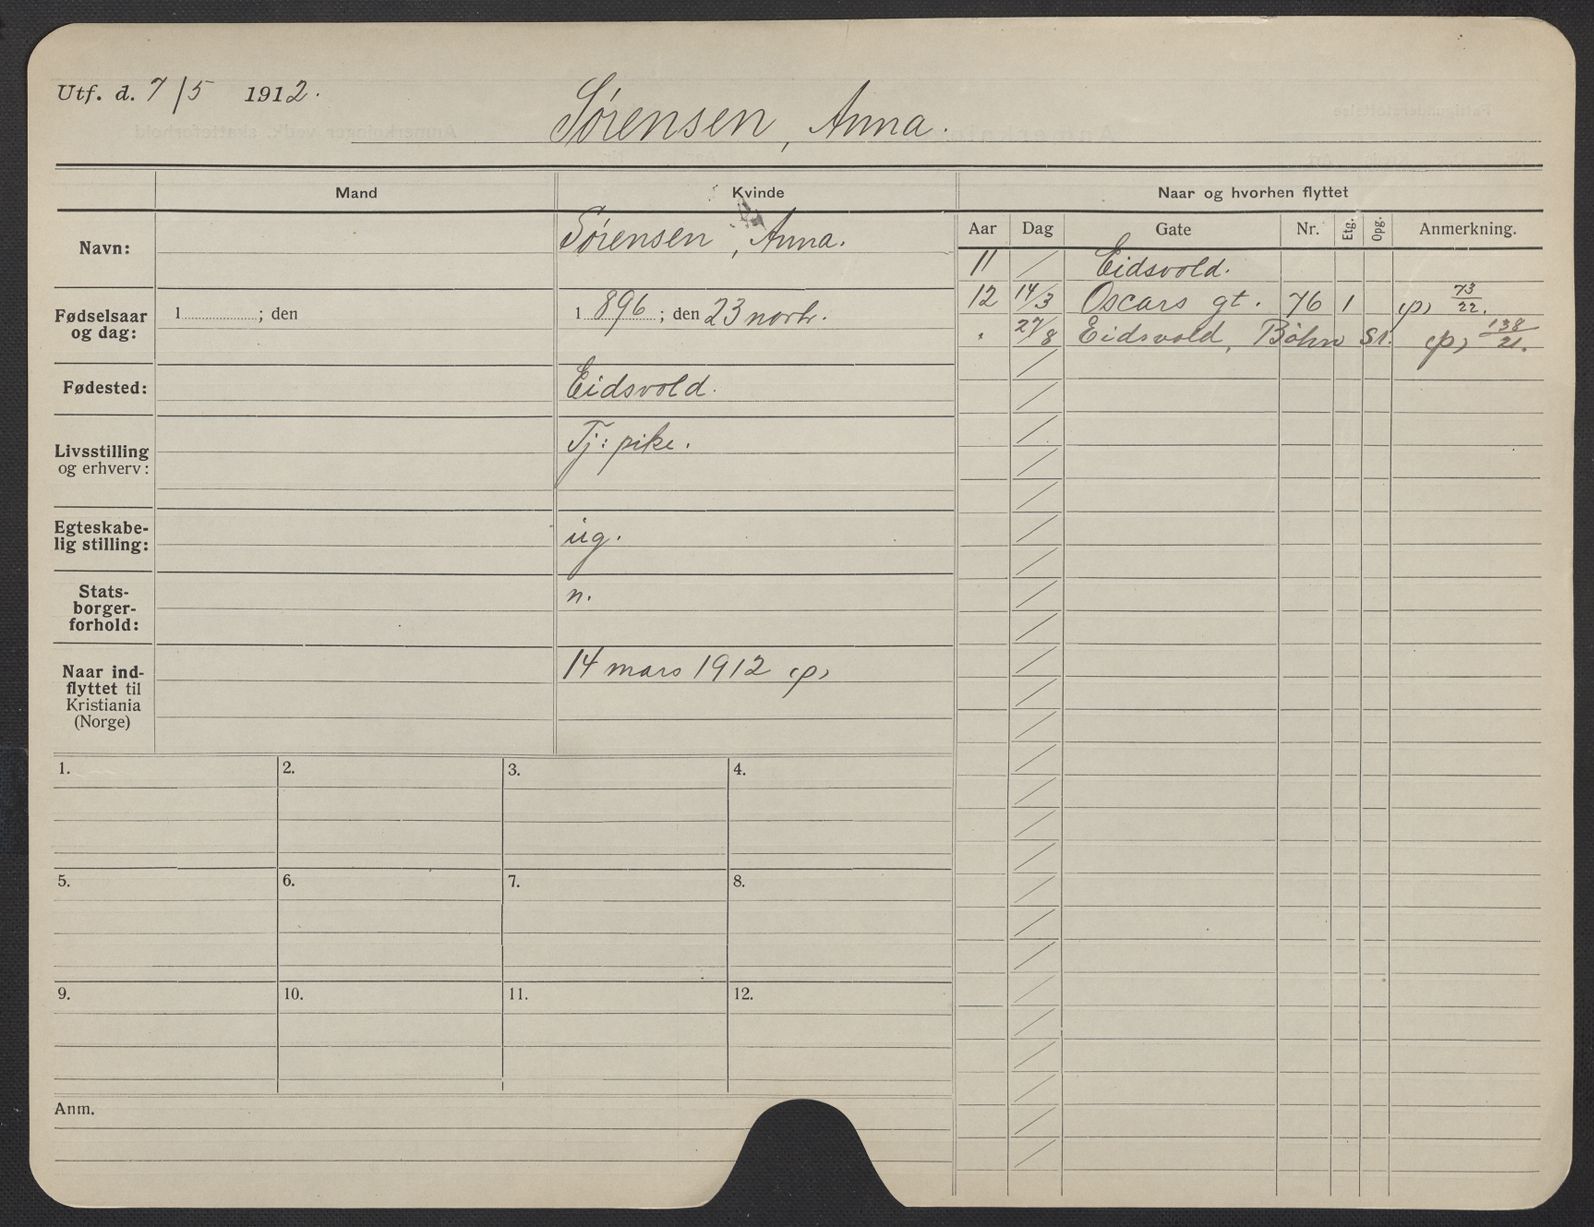 Utf. d. 7/5 1912.
Sørensen, Anna.
Mand
Kvinde
Naar og hvorhen flyttet
Navn:
Sørensen, Anna.
Aar Dag Gate Nr. Etg. Opg. Anmerkning.
11 / Eidsvold.
12 14/3 Oscars gt. 76 1 p) 73/22.
" 27/8 Eidsvold, Bøhn st. p) 138/21.
Fødselsaar og dag:
1 ; den
1 896 ; den 23 novbr.
Fødested:
Eidsvold.
Livsstilling og erhverv:
Tj: pike.
Egteskabe-
lig stilling:
ug.
Stats-
borger-
forhold:
n.
Naar ind-
flyttet til
Kristiania
(Norge)
14 mars 1912 p)
1. 2. 3. 4.
5. 6. 7. 8.
9. 10. 11. 12.
Anm.